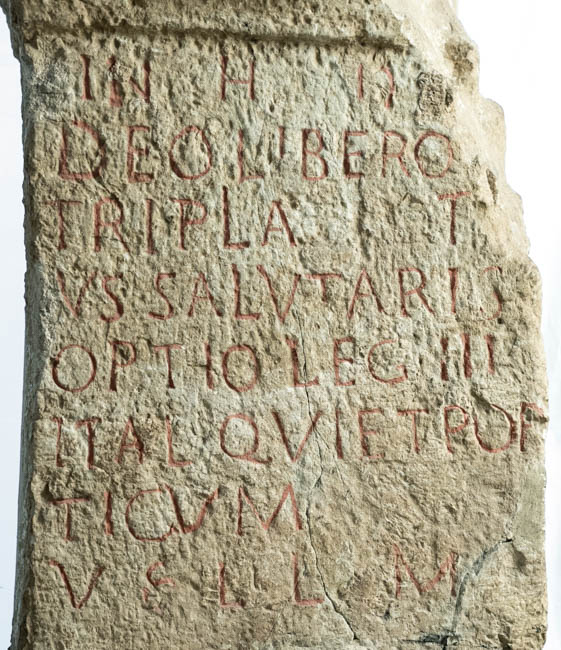 IN H D
DEO LIBERO
TRIPLA T
VS SALVTARIS
OPTIO LEG III
ITAL QVI ET POR
TICVM
V S L L M